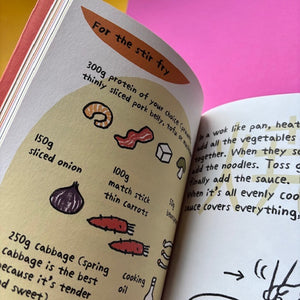 For the stir fry
300g protein of your choice (prawn,
thinly sliced pork belly, tofu or mush
150g
sliced onion
100g
match stick
thin carrots
50g
250g cabbage (spring
cabbage is the best
because it's tender
and sweet)
cooking
oil
a wok like pan, heat
add all the vegetables
together. When they so
add the noodles. Toss g
inally add the sauce.
When it's all evenly coo
sauce covers everything,